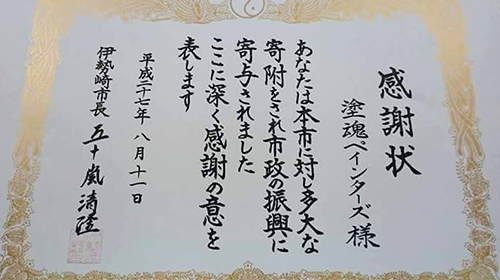 感謝状
塗魂ペインターズ 様
あなたは本市に対し多大な
寄附をされ市政の振興に
寄与されました
ここに深く感謝の意を
表します
平成二十七年八月十一日
伊勢崎市長 五十嵐清隆